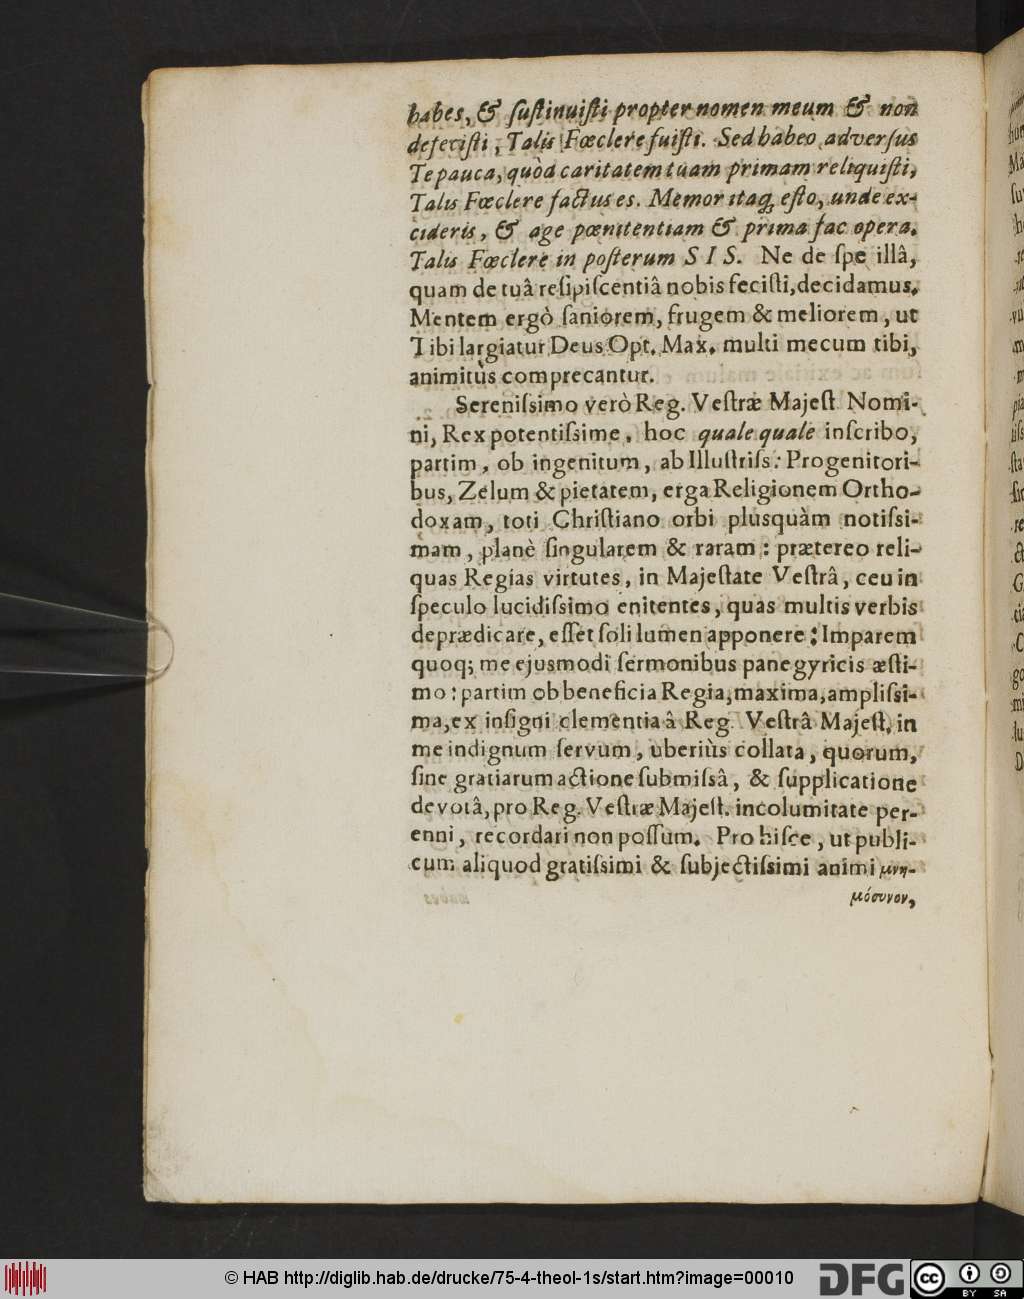 habes, & ſuſtinuiſti propter nomen meum & non
defeciſti, Talis Fœclere fuiſti. Sed habeo adverſus
Te pauca, quòd caritatem tuam primam reliquiſti,
Talis Fœclere factus es. Memor itaq; eſto, unde ex-
cideris, & age pœnitentiam & prima fac opera.
Talis Fœclere in poſterum S I S. Ne de ſpe illâ,
quam de tuâ reſipiſcentiâ nobis feciſti, decidamus.
Mentem ergò ſaniorem, frugem & meliorem, ut
Tibi largiatur Deus Opt. Max. multi mecum tibi,
animitùs comprecantur.
Sereniſsimo verò Reg. Veſtræ Majeſt Nomi-
ni, Rex potentiſsime, hoc quale quale inſcribo,
partim, ob ingenitum, ab Illuſtriſs: Progenitori-
bus, Zelum & pietatem, erga Religionem Ortho-
doxam, toti Chriſtiano orbi plusquàm notiſsi-
mam, planè ſingularem & raram: prætereo reli-
quas Regias virtutes, in Majeſtate Veſtrâ, ceu in
ſpeculo lucidiſsimo enitentes, quas multis verbis
deprædicare, eſſet ſoli lumen apponere: Imparem
quoq; me ejusmodi ſermonibus panegyricis æſti-
mo: partim ob beneficia Regia, maxima, ampliſsi-
ma, ex inſigni clementia â Reg. Veſtrâ Majeſt. in
me indignum ſervum, uberiùs collata, quorum,
ſine gratiarum actione ſubmiſsâ, & ſupplicatione
devotâ, pro Reg. Veſtræ Majeſt. incolumitate per-
enni, recordari non poſſum. Pro hiſce, ut publi-
cum aliquod gratiſsimi & ſubjectiſsimi animi μνη-
μόσυνον,
© HAB http://diglib.hab.de/drucke/75-4-theol-1s/start.htm?image=00010
DFG
cc BY SA